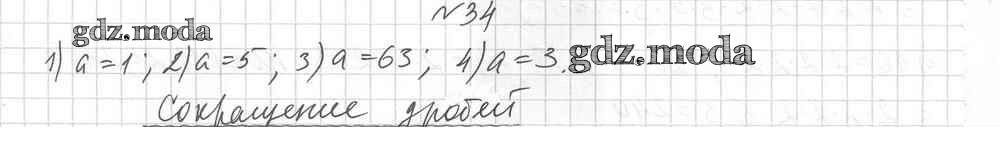 №34
gdz.moda
1) a=1; 2) a=5; 3) a=63; 4) a=3.
gdz.moda
Сокращение дробей